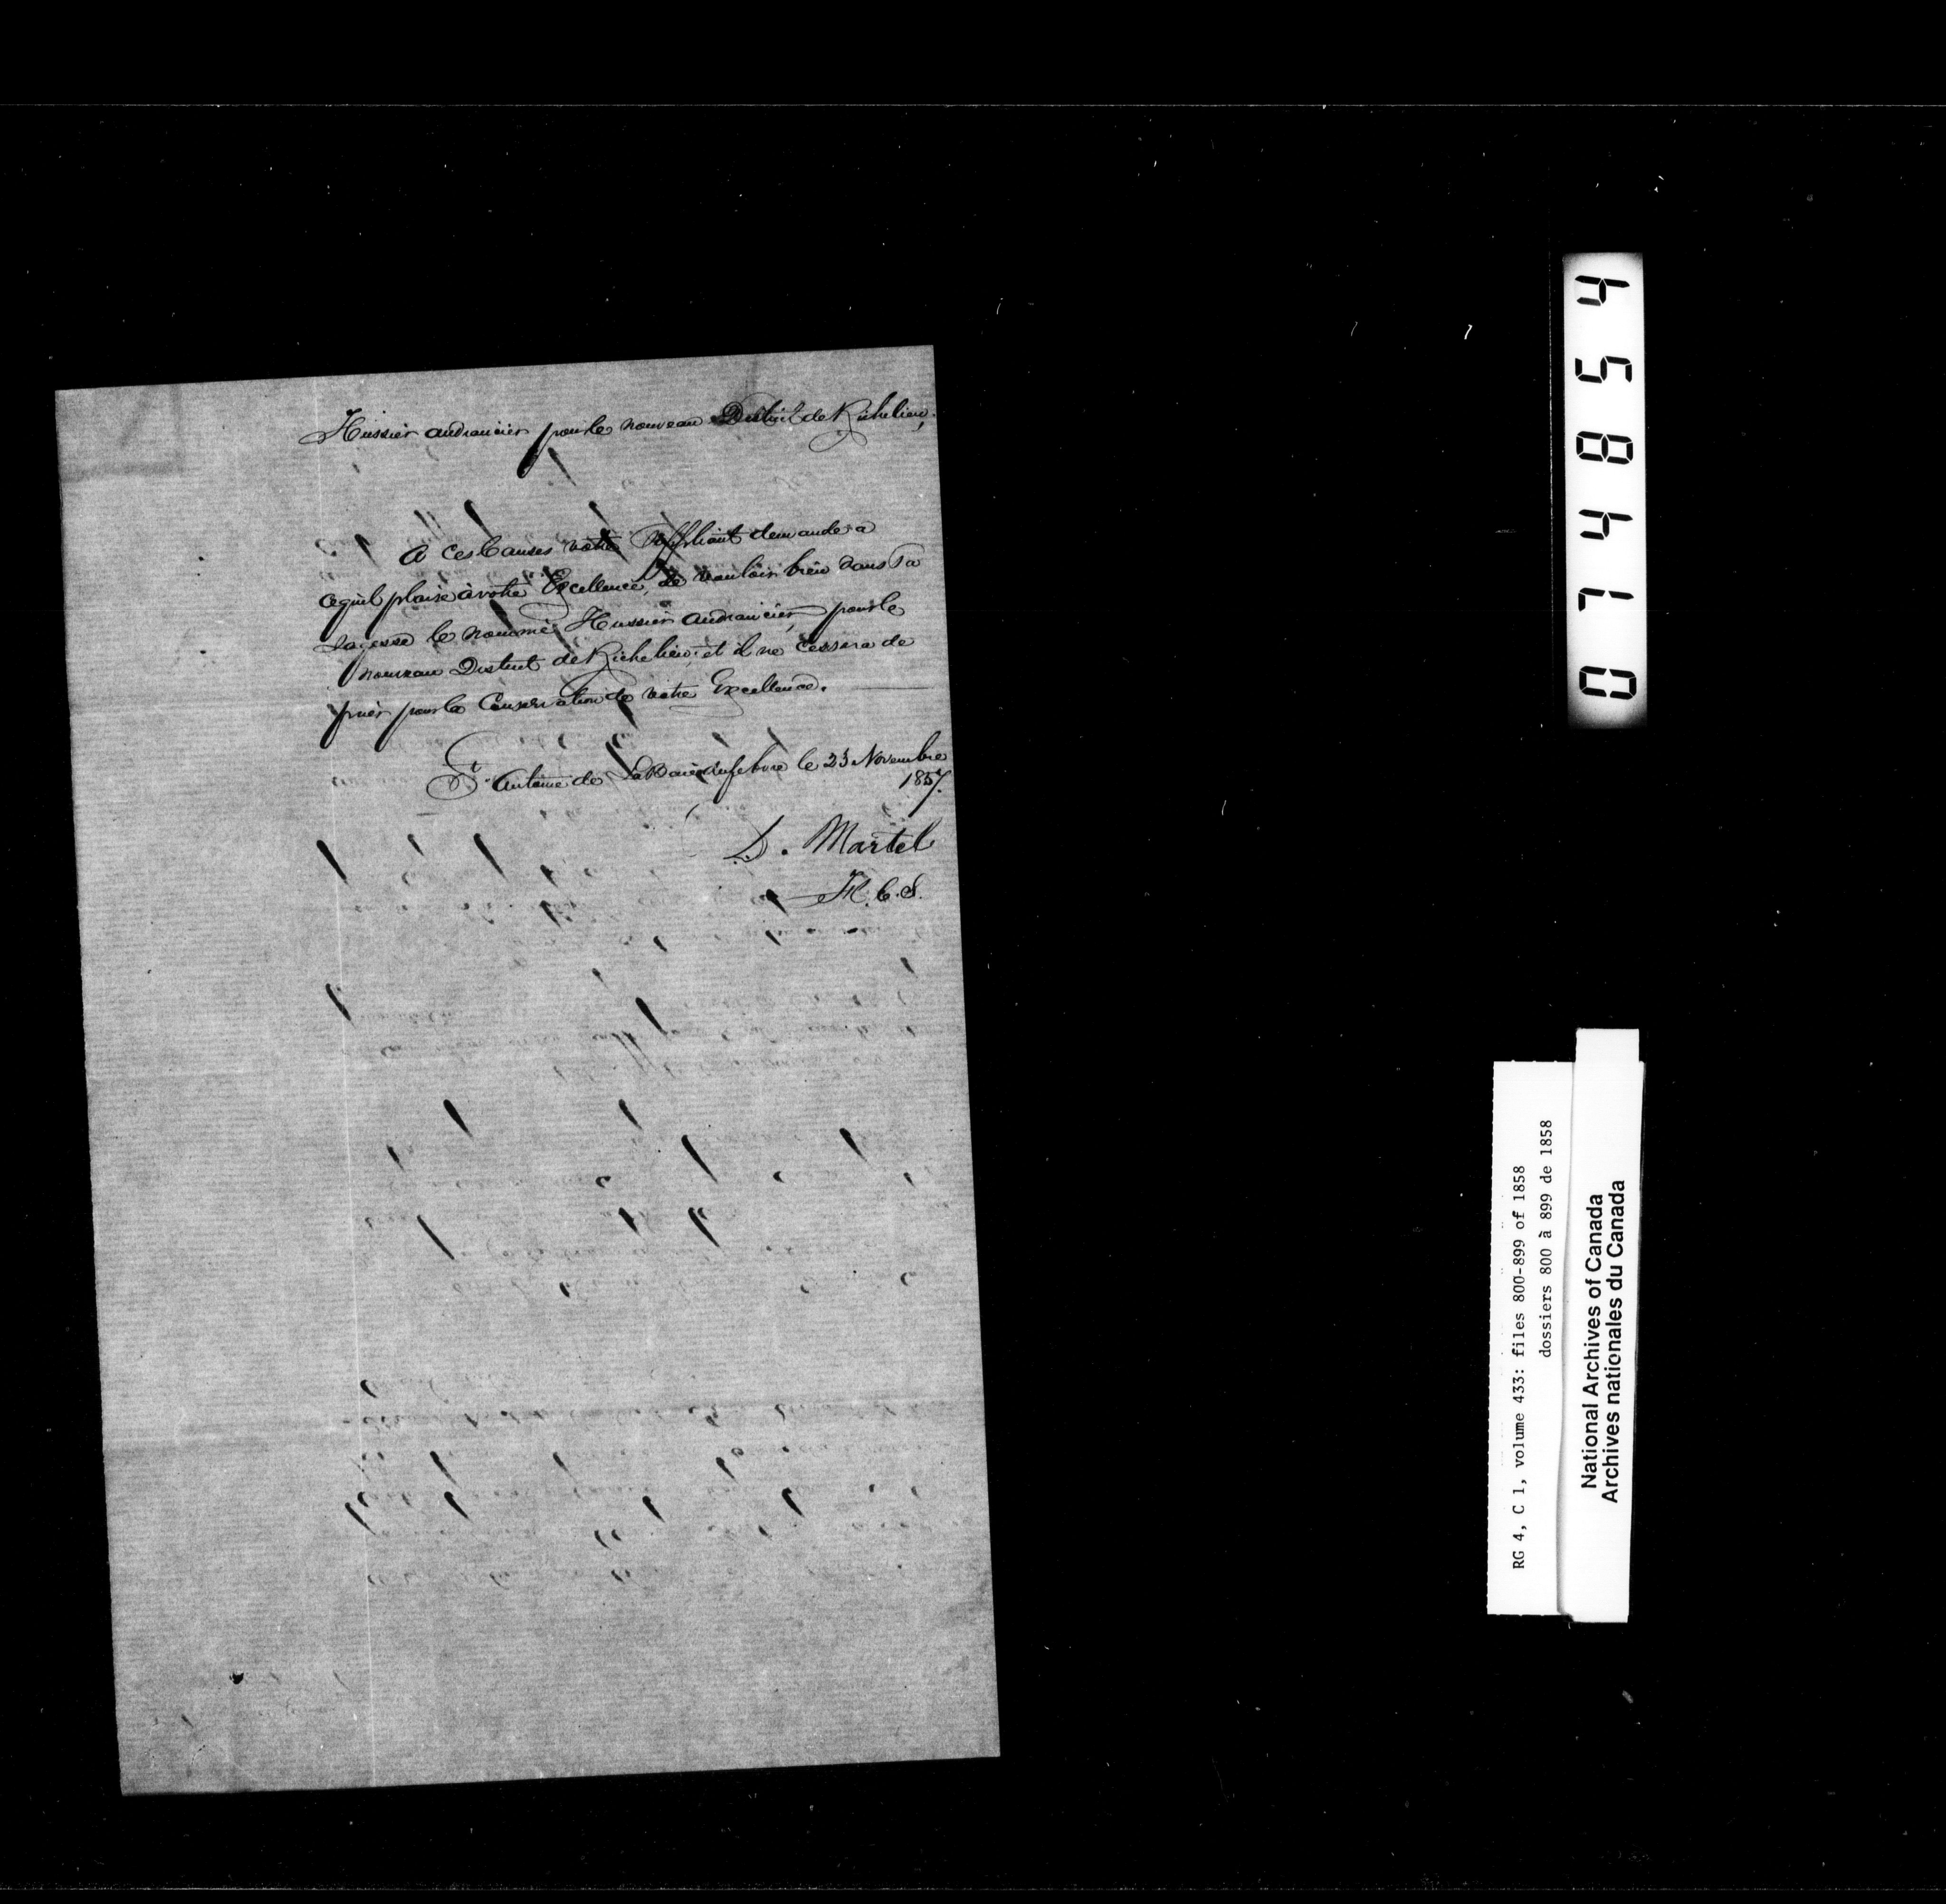 Hussier audiancier pour le nouveau District de Richelieu,
A ces Causes votre Suppliant demande a
cequil plaise à votre Excellence, de vouloir bien dans sa
sagesse le nommé Hussier audiancier, pour le
nouveau District de Richelieu, et il ne cessera de
prier pour la Conservation de votre Excellence.
St. Antoine de LaBaie Lefebvre le 23 Novembre
1857.
D. Martel
H. C. S.
074854
RG 4, C 1, volume 433: files 800-899 of 1858
dossiers 800 à 899 de 1858
National Archives of Canada
Archives nationales du Canada